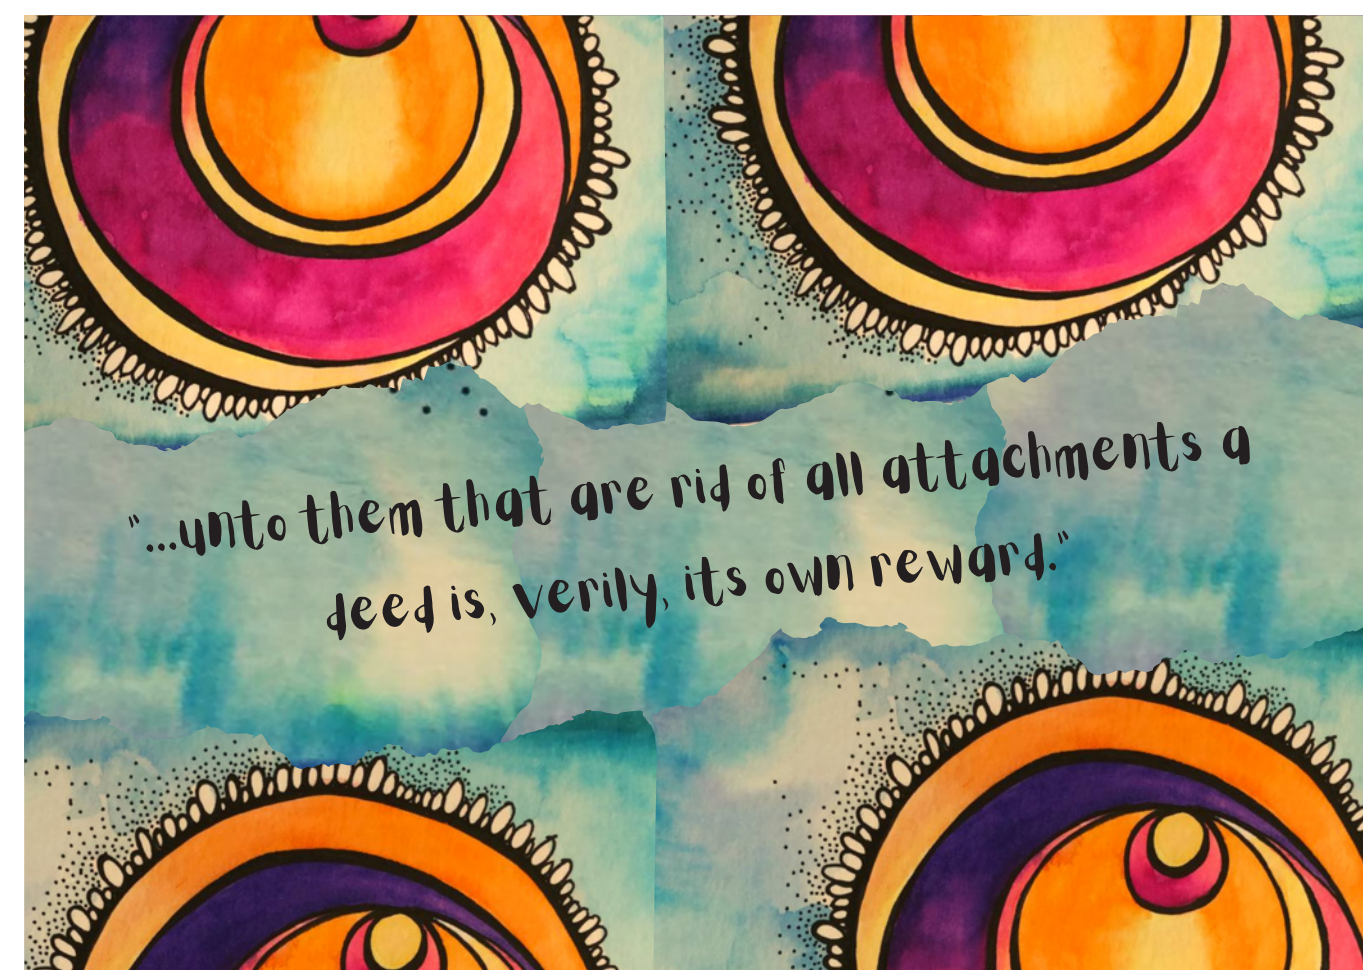 "...unto them that are rid of all attachments a
deed is, verily, its own reward."